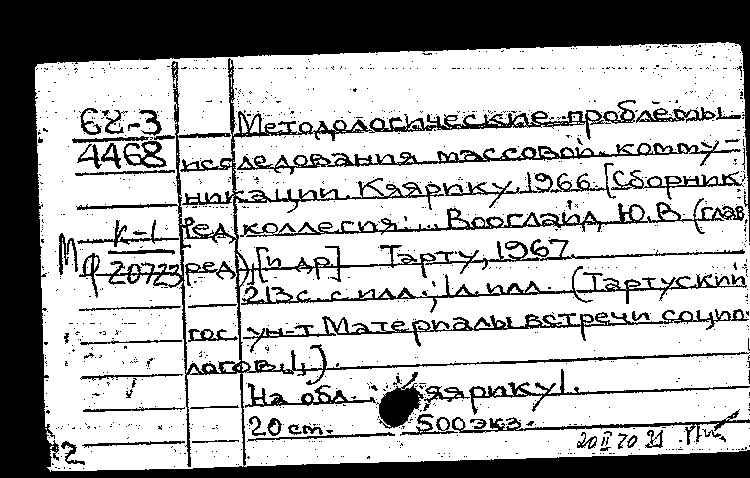 62-3
4468
Методологические проблемы
исследования массовой комму-
никации. Кяярику. 1966. [Сборник
Ред. коллегия: ... Вооглайд Ю.В (глав
ред), [и др] Тарту, 1967.
К-1
Мф 20723
213 с. с илл.; 1 л. илл. (Тартуский
гос. ун-т Материалы встречи социо-
логов, I,).
На обл.: яярику I.
20 cm. 500 экз.
20 II 70 21
2